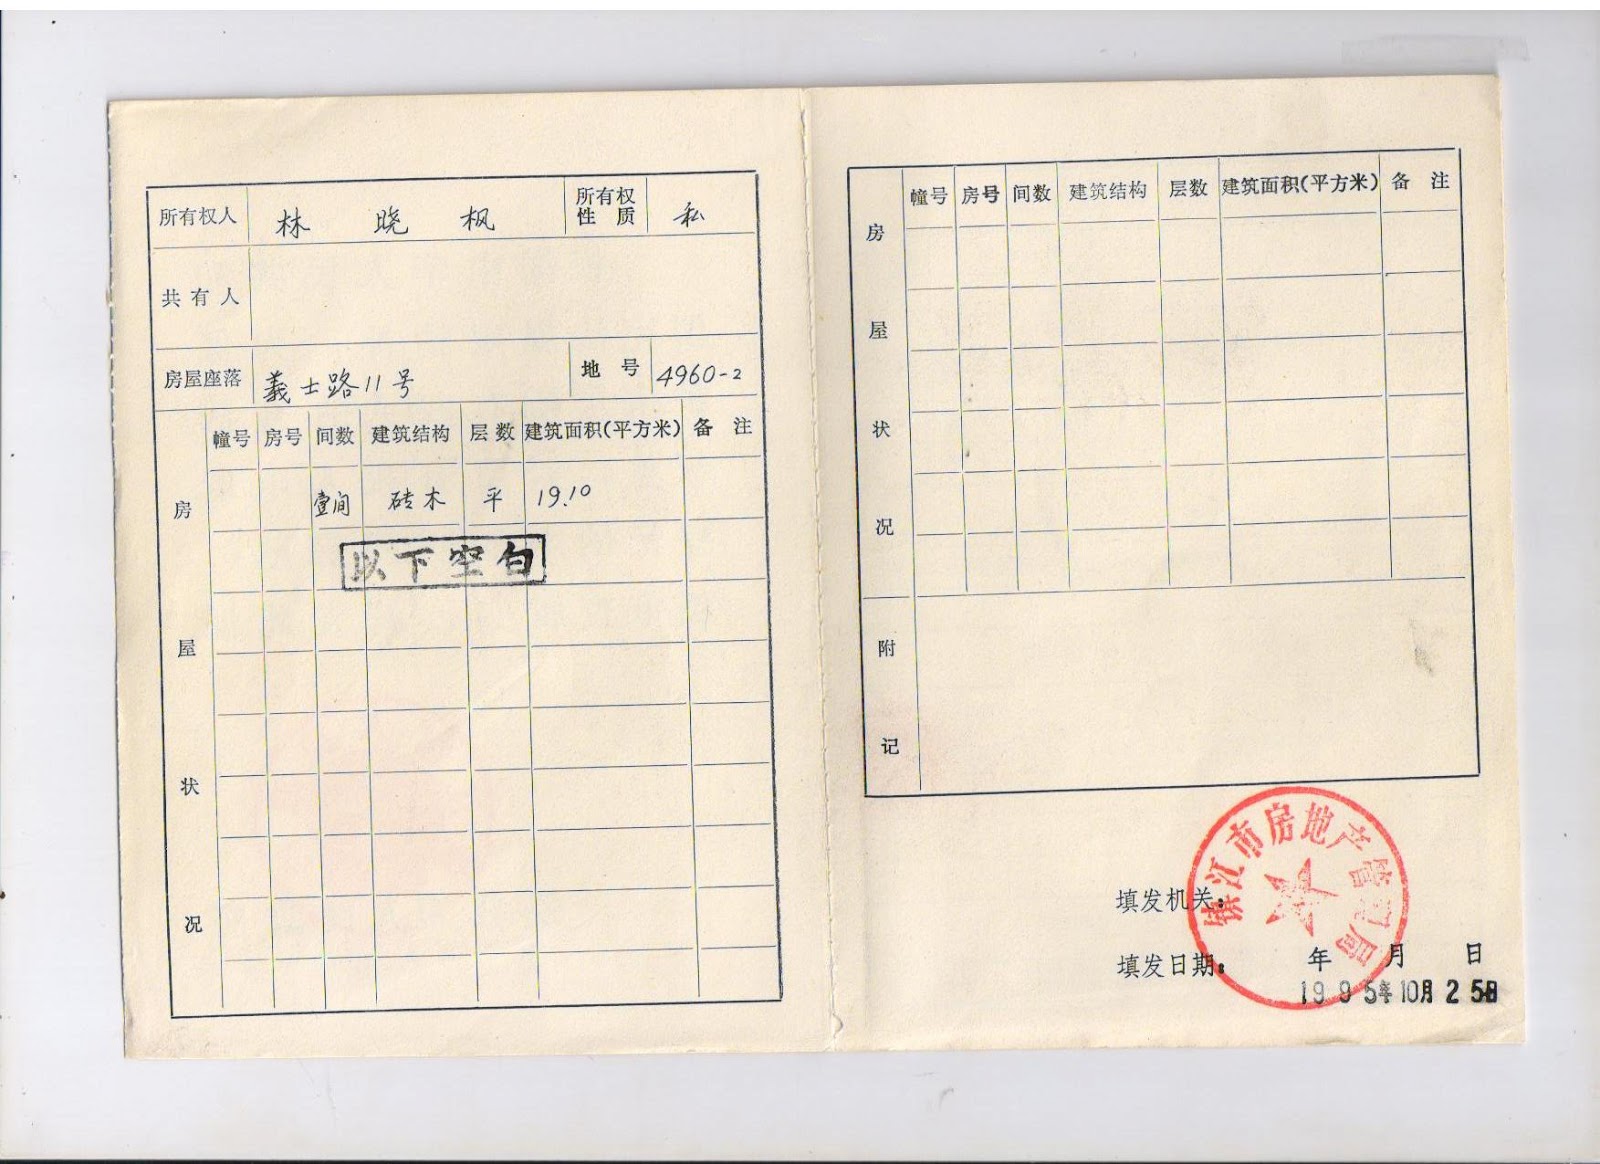 所有权人 林 晓 枫 所有权性质 私
共有人
房屋座落 義士路11号 地号 4960-2
房屋状况
幢号 房号 间数 建筑结构 层数 建筑面积(平方米) 备注
壹间 砖木 平 19.10
以下空白
房屋状况
幢号 房号 间数 建筑结构 层数 建筑面积(平方米) 备注
附记
镇江市房地产管理局
填发机关：
填发日期： 年 月 日
1995年10月25日